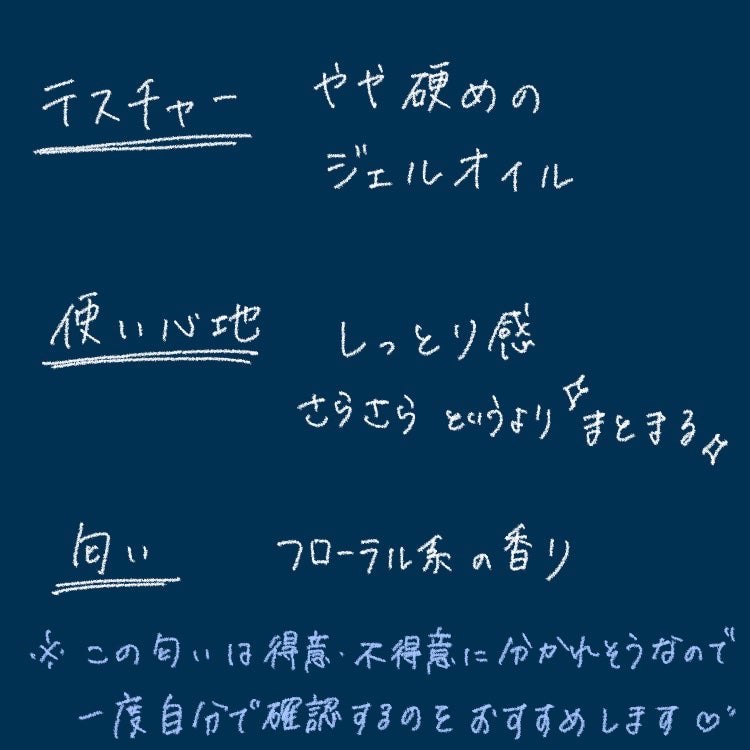 テスチャー やや硬めの
ジェルオイル
使い心地 しっとり感
さらさら というより まとまる
匂い フローラル系の香り
※この匂いは得意・不得意に分かれそうなので
一度自分で確認するのをおすすめします♡